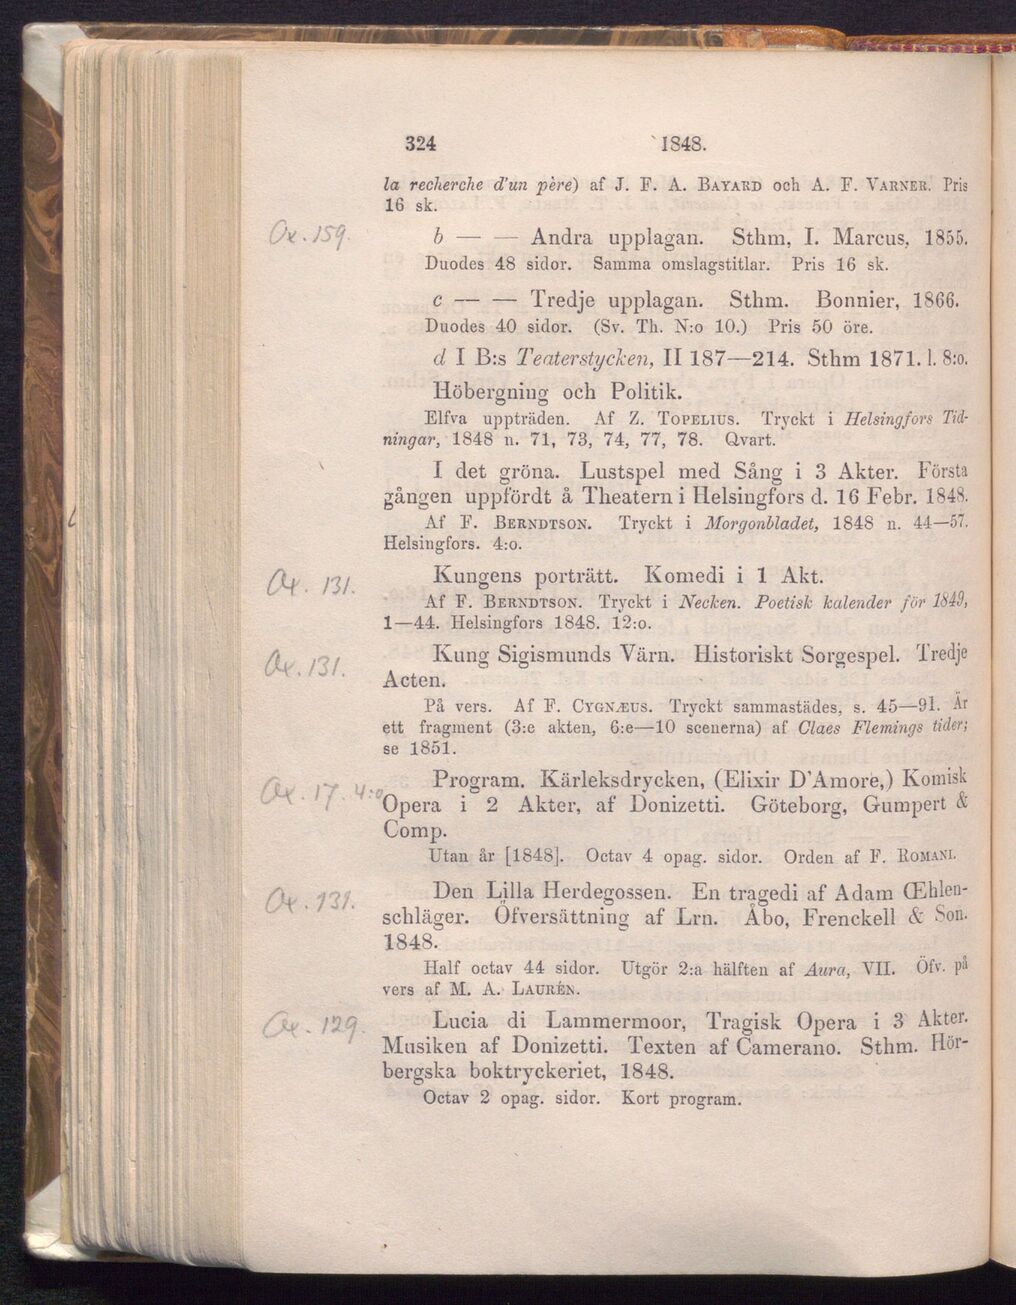 324 1848.
la recherche d'un père) af J. F. A. BAYARD och A. F. VARNER. Pris
16 sk.
Ox. 159.
b — — Andra upplagan. Sthm, I. Marcus, 1855.
Duodes 48 sidor. Samma omslagstitlar. Pris 16 sk.
c — — Tredje upplagan. Sthm. Bonnier, 1866.
Duodes 40 sidor. (Sv. Th. N:o 10.) Pris 50 öre.
d I B:s Teaterstycken, II 187—214. Sthm 1871. l. 8:o.
Höbergning och Politik.
Elfva uppträden. Af Z. TOPELIUS. Tryckt i Helsingfors Tid-
ningar, 1848 n. 71, 73, 74, 77, 78. Qvart.
I det gröna. Lustspel med Sång i 3 Akter. Första
gången uppfördt å Theatern i Helsingfors d. 16 Febr. 1848.
Af F. BERNDTSON. Tryckt i Morgonbladet, 1848 n. 44—57.
Helsingfors. 4:o.
Ox. 131.
Kungens porträtt. Komedi i 1 Akt.
Af F. BERNDTSON. Tryckt i Necken. Poetisk kalender för 1849,
1—44. Helsingfors 1848. 12:o.
Ox. 131.
Kung Sigismunds Värn. Historiskt Sorgespel. Tredje
Acten.
På vers. Af F. CYGNÆUS. Tryckt sammastädes, s. 45—91. Är
ett fragment (3:e akten, 6:e—10 scenerna) af Claes Flemings tider;
se 1851.
Ox. 17. 4:o
Program. Kärleksdrycken, (Elixir D'Amore,) Komisk
Opera i 2 Akter, af Donizetti. Göteborg, Gumpert &
Comp.
Utan år [1848]. Octav 4 opag. sidor. Orden af F. ROMANI.
Ox. 131.
Den Lilla Herdegossen. En tragedi af Adam Œhlen-
schläger. Öfversättning af Lrn. Åbo, Frenckell & Son.
1848.
Half octav 44 sidor. Utgör 2:a hälften af Aura, VII. Öfv. på
vers af M. A. LAURÉN.
Ox. 129.
Lucia di Lammermoor, Tragisk Opera i 3 Akter.
Musiken af Donizetti. Texten af Camerano. Sthm. Hör-
bergska boktryckeriet, 1848.
Octav 2 opag. sidor. Kort program.